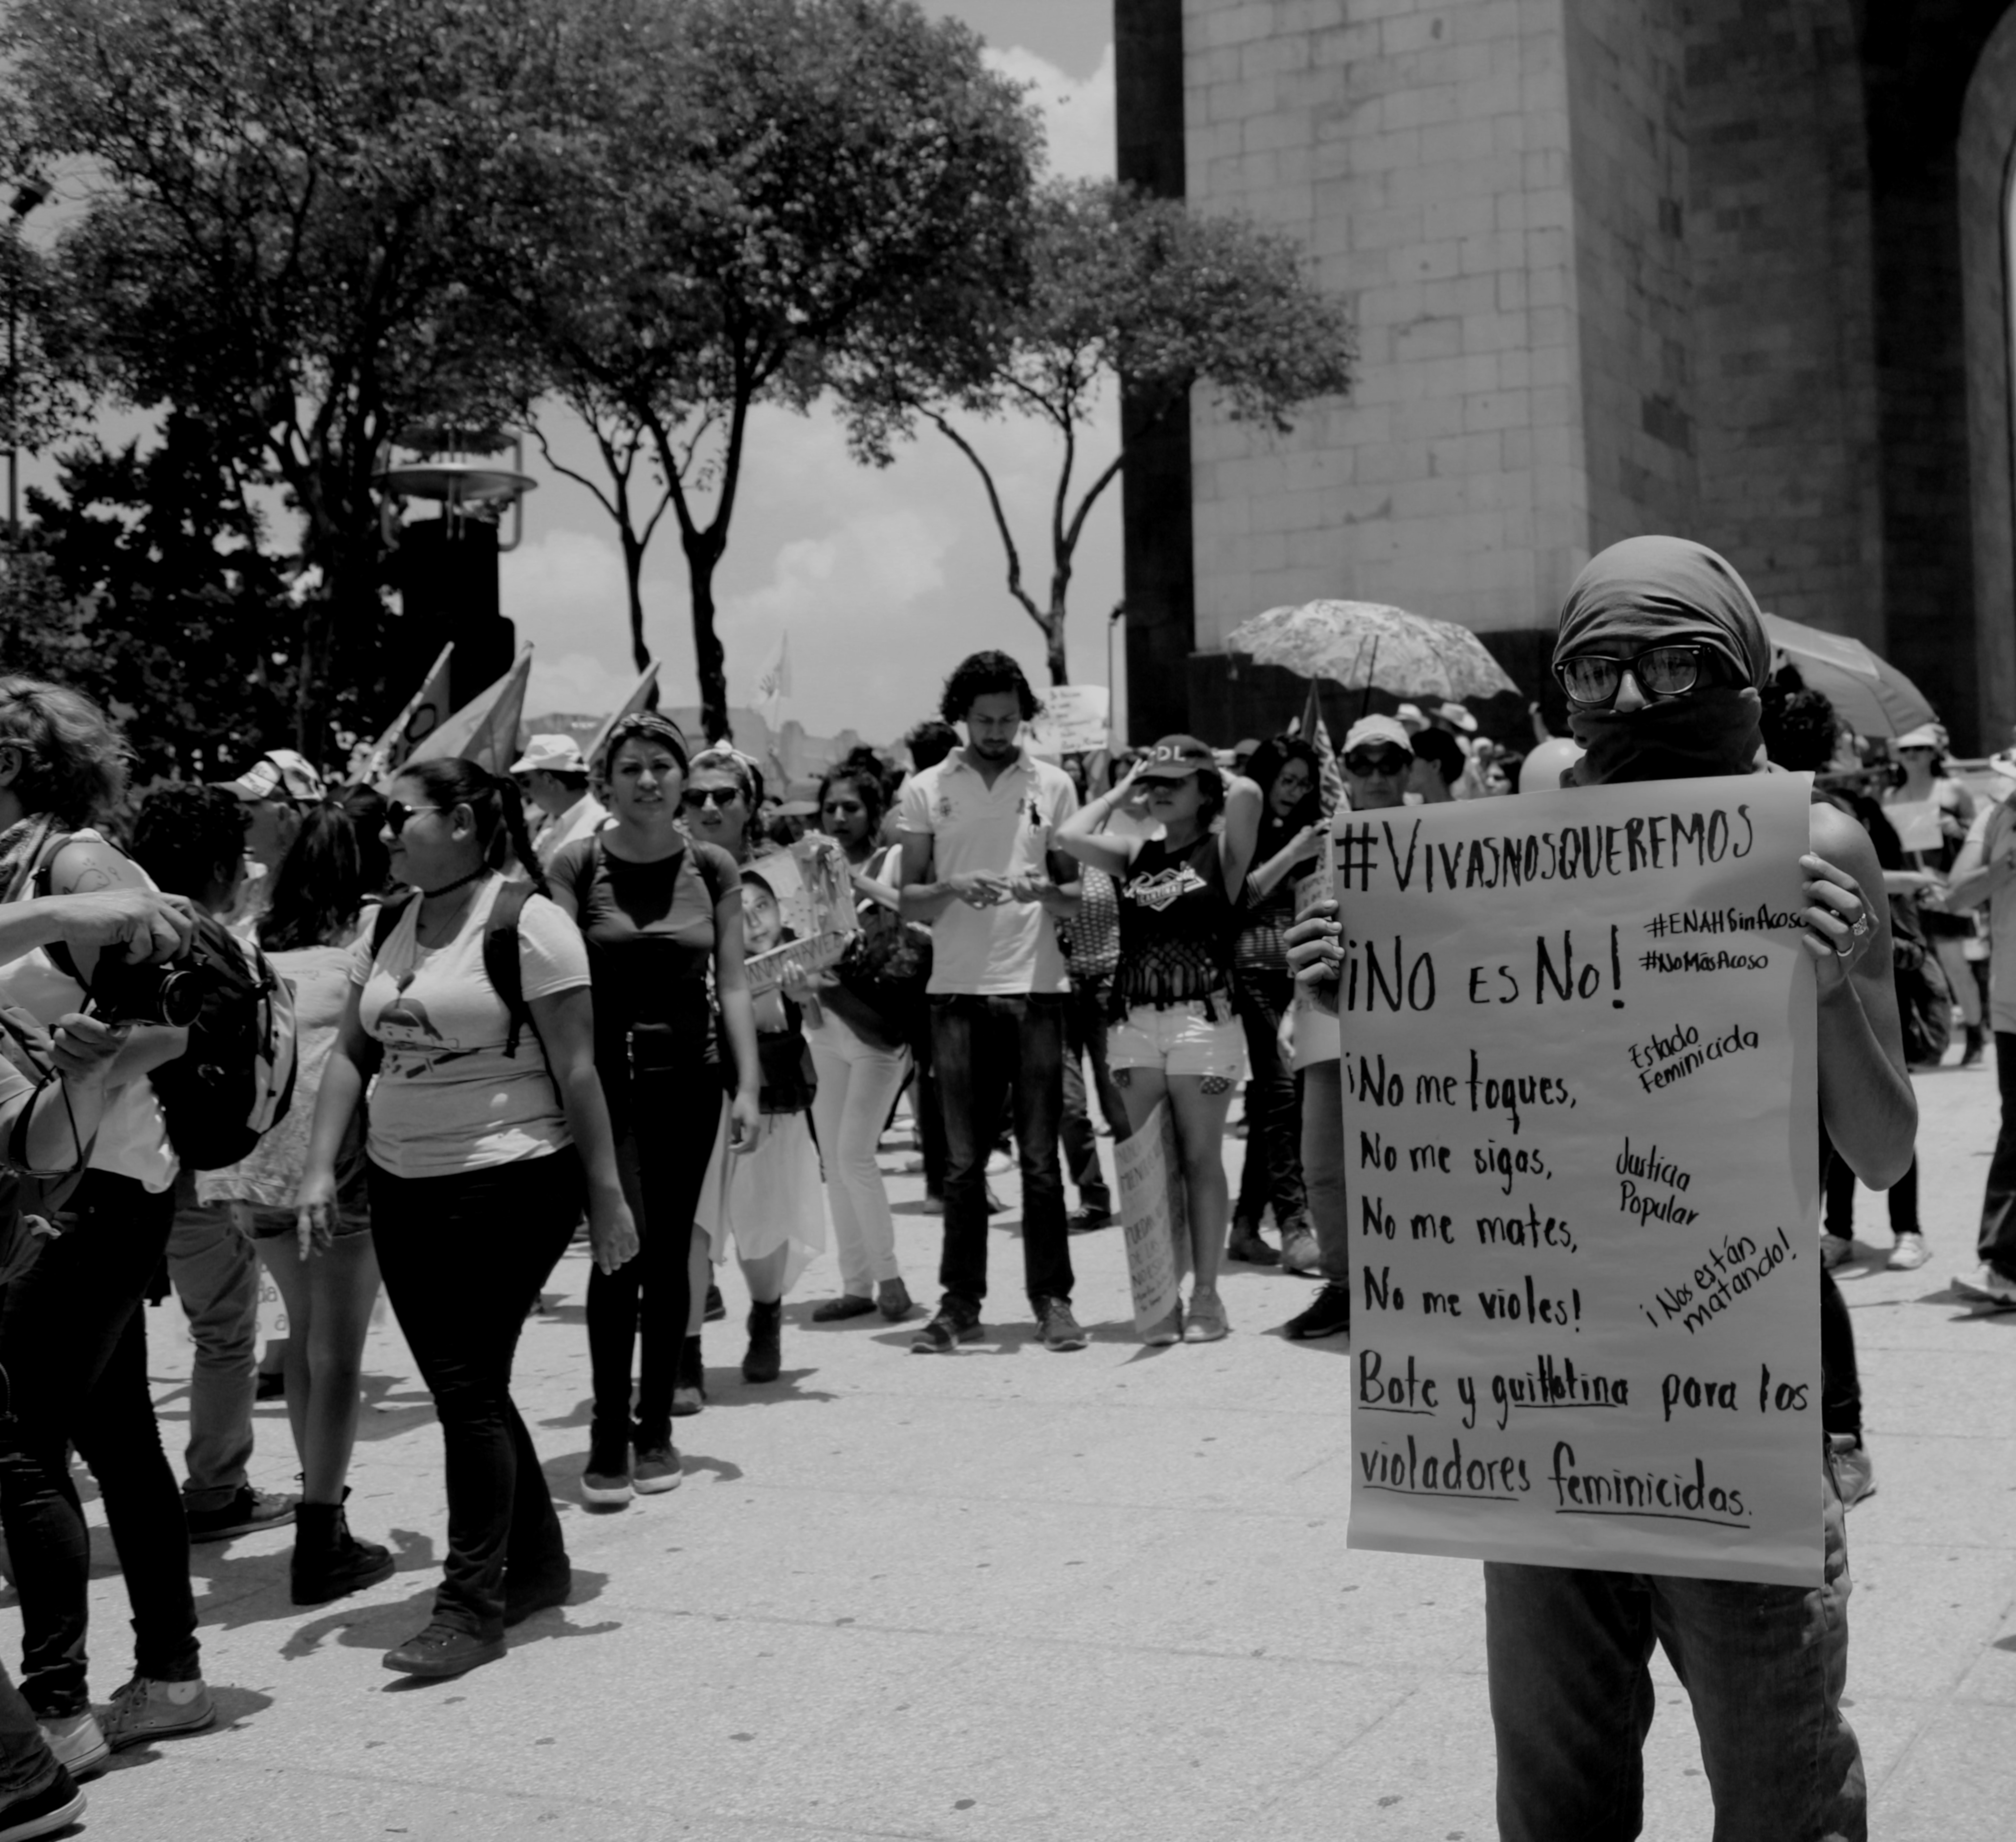 #VIVASNOSQUEREMOS
¡NO ES NO!
#ENAHSinAcoso
#NoMásAcoso
¡No me toques,
Estado
Feminicida
No me sigas,
Justicia
Popular
No me mates,
No me violes!
¡Nos están
matando!
Bote y guillotina para los
violadores feminicidas.